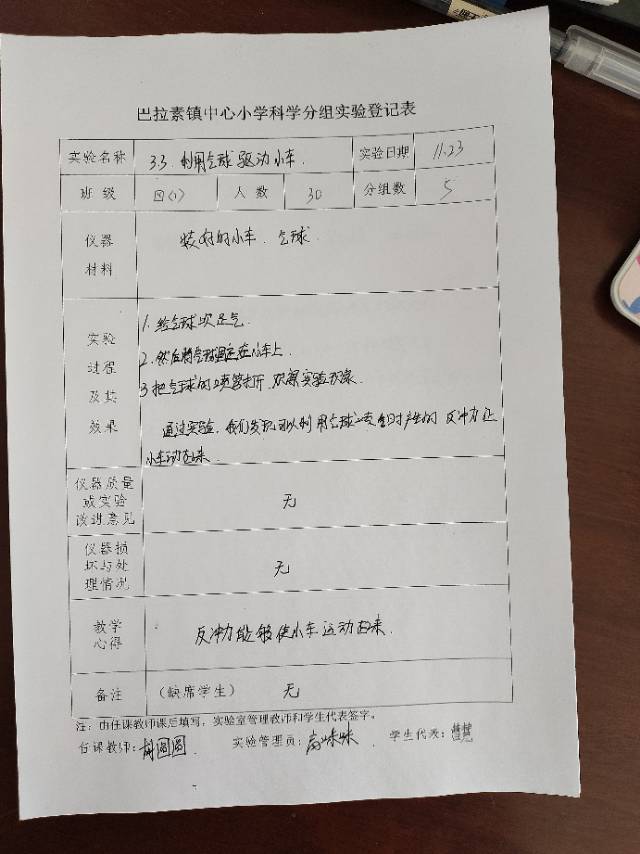 巴拉素镇中心小学科学分组实验登记表
实验名称 3.3 利用气球驱动小车. 实验日期 11.23
班 级 四(1) 人 数 30 分组数 5
仪器
材料
装好的小车. 气球.
实验
过程
及其
效果
1. 给气球吹足气.
2. 然后将气球固定在小车上
3 把气球的喷管打开,观察实验现象.
通过实验,我们发现可以利用气球喷气时产生的反冲力让
小车动起来.
仪器质量
或实验
改进意见
无
仪器损
坏与处
理情况
无
教学
心得
反冲力能够使小车运动起来.
备注 (缺席学生) 无
注:由任课教师课后填写,实验室管理教师和学生代表签字。
任课教师: 圆圆 实验管理员: 咪咪 学生代表: